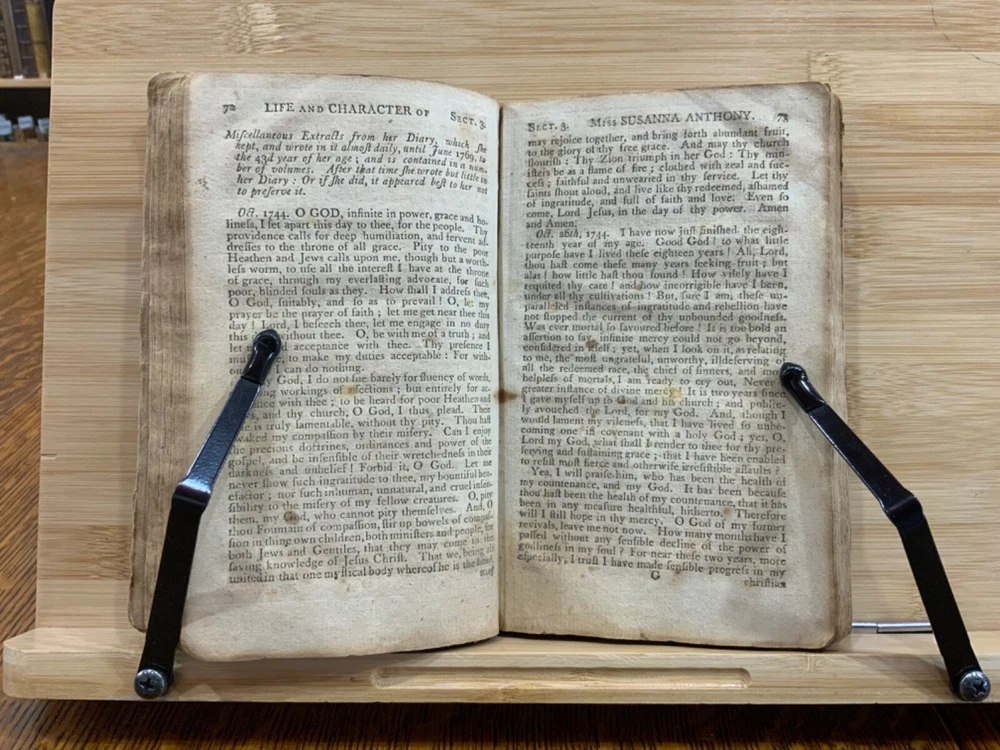 72 LIFE AND CHARACTER OF SECT. 3.
Miſcellaneous Extracts from her Diary, which ſhe
kept, and wrote in it almoſt daily, until June 1769, in
the 43d year of her age ; and is contained in a num-
ber of volumes. After that time ſhe wrote but little in
her Diary : Or if ſhe did, it appeared beſt to her not
to preſerve it.
Oct. 1744. O GOD, infinite in power, grace and ho-
lineſs, I ſet apart this day to thee, for the people. Thy
providence calls for deep humiliation, and fervent ad-
dreſſes to the throne of all grace. Pity to the poor
Heathen and Jews calls upon me, though but a worth-
leſs worm, to uſe all the intereſt I have at the throne
of grace, through my everlaſting advocate, for ſuch
poor, blinded ſouls as they. How ſhall I addreſs thee,
O God, ſuitably, and ſo as to prevail ! O, let my
prayer be the prayer of faith ; let me get near thee this
day ! Lord, I beſeech thee, let me engage in no duty
this without thee. O, be with me of a truth ; and
let acceptance with thee. Thy preſence I
to make my duties acceptable : For with-
I can do nothing.
God, I do not ſue barely for fluency of words,
workings of affections ; but entirely for ac-
with thee ; to be heard for poor Heathen and
and thy church, O God, I thus plead. Their
is truly lamentable, without thy pity. Thou haſt
my compaſſion by their miſery. Can I enjoy
the precious doctrines, ordinances and power of the
goſpel, and be inſenſible of their wretchedneſs in their
darkneſs and unbelief ! Forbid it, O God. Let me
never ſhow ſuch ingratitude to thee, my bountiful ben-
efactor ; nor ſuch inhuman, unnatural, and cruel inſen-
ſibility to the miſery of my fellow creatures. O, pity
them, my God, who cannot pity themſelves. And, O
thou Fountain of compaſſion, ſtir up bowels of compaſ-
ſion in thine own children, both miniſters and people, for
both Jews and Gentiles, that they may come to the
ſaving knowledge of Jeſus Chriſt. That we, being all
united in that one myſtical body whereof he is the
may
SECT. 3. MISS SUSANNA ANTHONY. 73
may rejoice together, and bring forth abundant fruit,
to the glory of thy free grace. And may thy church
flouriſh : Thy Zion triumph in her God : Thy min-
iſters be as a flame of fire ; clothed with zeal and ſuc-
ceſs ; faithful and unwearied in thy ſervice. Let thy
ſaints ſhout aloud, and live like thy redeemed, aſhamed
of ingratitude, and full of faith and love. Even ſo
come, Lord Jeſus, in the day of thy power. Amen
and Amen.
Oct. 26th, 1744. I have now juſt finiſhed the eigh-
teenth year of my age. Good God ! to what little
purpoſe have I lived theſe eighteen years ! Ah, Lord,
thou haſt come theſe many years ſeeking fruit ; but
alas ! how little haſt thou found ! How vilely have I
requited thy care ! and how incorrigible have I been,
under all thy cultivations ! But, ſure I am, theſe un-
paralleled inſtances of ingratitude and rebellion have
not ſtopped the current of thy unbounded goodneſs.
Was ever mortal ſo favoured before ! It is too bold an
aſſertion to ſay, infinite mercy could not go beyond,
conſidered in itſelf ; yet, when I look on it, as relating
to me, the moſt ungrateful, unworthy, illdeſerving of
all the redeemed race, the chief of ſinners, and moſt
helpleſs of mortals, I am ready to cry out, Never
greater inſtance of divine mercy ! It is two years ſince
I gave myſelf up to God and his church ; and public-
ly avouched the Lord, for my God. And, though I
would lament thy vileneſs, that I have lived ſo unbe-
coming one in covenant with a holy God ; yet, O,
Lord my God, what ſhall I render to thee for thy pre-
ſerving and ſuſtaining grace ; that I have been enabled
to reſiſt moſt fierce and otherwiſe irreſiſtible aſſaults ?
Yea, I will praiſe him, who has been the health of
my countenance, and my God. It has been becauſe
thou haſt been the health of my countenance, that it has
been in any meaſure healthful, hitherto. Therefore
will I ſtill hope in thy mercy. O God of my former
revivals, leave me not now. How many months have I
paſſed without any ſenſible decline of the power of
godlineſs in my ſoul ? For near theſe two years, more
eſpecially, I truſt I have made ſenſible progreſs in my
G
chriſtian